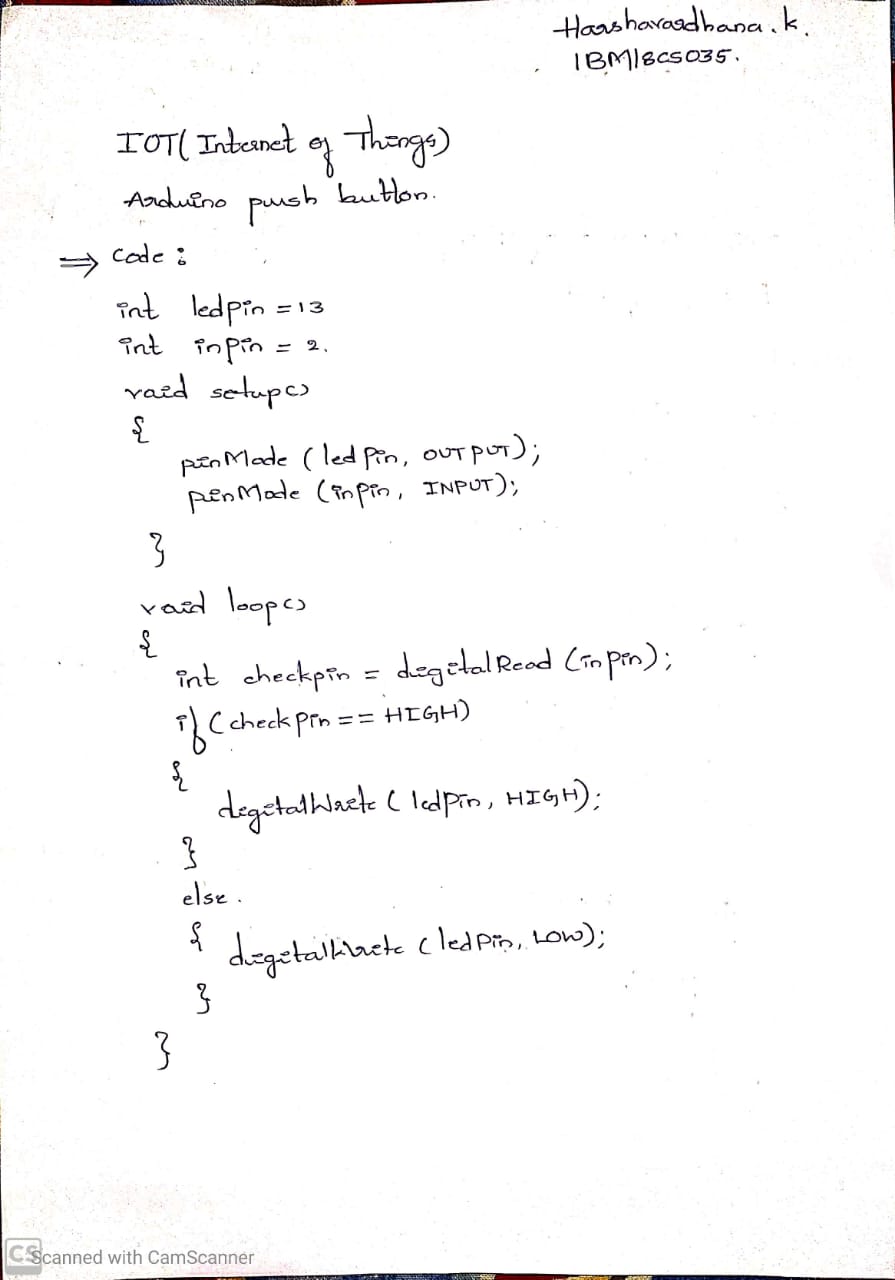 Harshavardhana.k.
1BM18CS035.
IOT( Internet of Things)
Arduino push button.
⇒ code :
int ledpin = 13
int inpin = 2.
void setup()
{
pinMode ( led pin, OUTPUT);
pinMode (inpin, INPUT);
}
void loop()
{
int checkpin = digitalRead (inpin);
if ( checkpin == HIGH)
{
digitalWrite ( ledpin, HIGH);
}
else.
{ digitalWrite ( ledpin, LOW);
}
}
CS Scanned with CamScanner